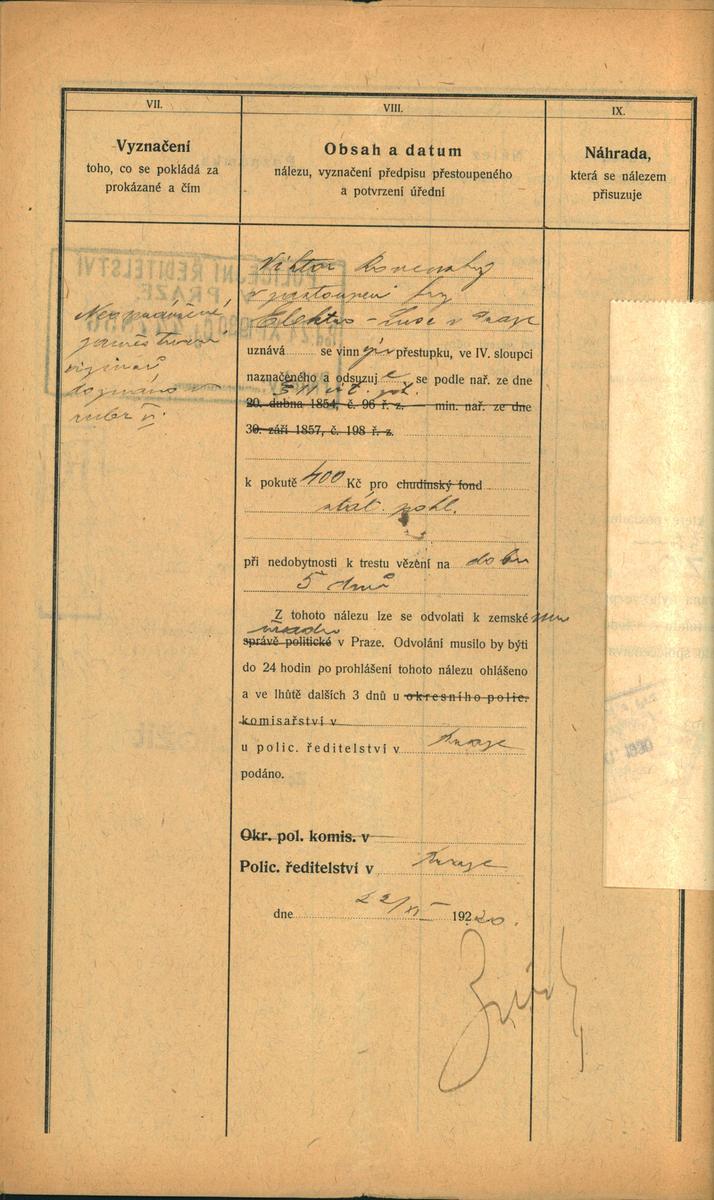 VII.
Vyznačení
toho, co se pokládá za
prokázané a čím
VIII.
Obsah a datum
nálezu, vyznačení předpisu přestoupeného
a potvrzení úřední
IX.
Náhrada,
která se nálezem
přisuzuje
doznáno
rubr VI.
Viktor
v zastoupení fy
Elektro - v Praze
uznává se vinným přestupku, ve IV. sloupci
naznačeného a odsuzuje se podle nař. ze dne
20. dubna 1854, č. 96 ř. z. min. nař. ze dne
30. září 1857, č. 198 ř. z.
k pokutě 400 Kč pro chudinský fond
stát. pokl.
při nedobytnosti k trestu vězení na dobu
5 dnů
Z tohoto nálezu lze se odvolati k zemskému
úřadu
správě politické v Praze. Odvolání musilo by býti
do 24 hodin po prohlášení tohoto nálezu ohlášeno
a ve lhůtě dalších 3 dnů u okresního polic.
komisařství v
u polic. ředitelství v Praze
podáno.
Okr. pol. komis. v
Polic. ředitelství v Praze
dne 22/XI 192